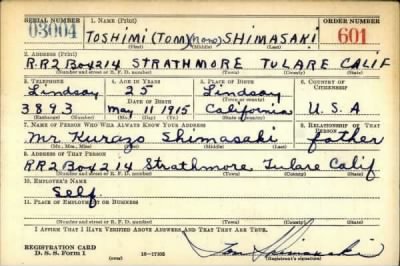 SERIAL NUMBER 1. NAME (Print) ORDER NUMBER
03004 TOSHIMI (TOM) (NONE) SHIMASAKI 601
(First) (Middle) (Last)
2. ADDRESS (Print)
R.R.2 Box 214 STRATHMORE TULARE CALIF
(Number and street or R. F. D. number) (Town) (County) (State)
3. TELEPHONE 4. AGE IN YEARS 5. PLACE OF BIRTH 6. COUNTRY OF CITIZENSHIP
Lindsay 25 Lindsay
(Town or county)
DATE OF BIRTH
3893 May 11 1915 California U.S.A
7. NAME OF PERSON WHO WILL ALWAYS KNOW YOUR ADDRESS 8. RELATIONSHIP OF THAT PERSON
Mr. Shimasaki father
(Mr., Mrs., Miss) (First) (Middle) (Last)
9. ADDRESS OF THAT PERSON
RR2 Box 214 Strathmore Tulare Calif
(Number and street or R. F. D. number) (Town) (County) (State)
10. EMPLOYER'S NAME
Self
11. PLACE OF EMPLOYMENT OR BUSINESS
(Number and street or R. F. D. number) (Town) (County) (State)
I AFFIRM THAT I HAVE VERIFIED ABOVE ANSWERS AND THAT THEY ARE TRUE.
REGISTRATION CARD
D. S. S. Form 1 (over) 16-17105 Tom Shimasaki
(Registrant's signature)